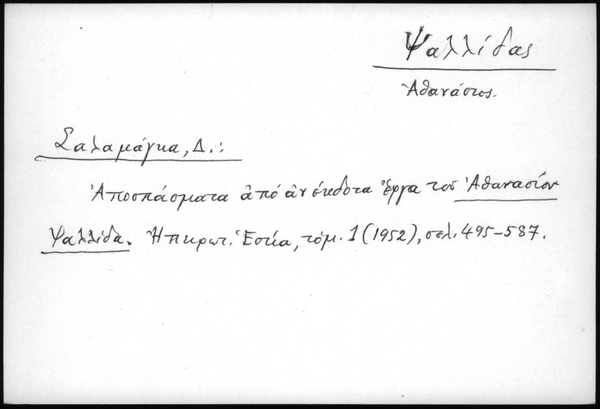 Ψαλλίδας
Ἀθανάσιος.
Σαλαμάγκα, Δ.:
Ἀποσπάσματα ἀπό ἀνέκδοτα ἔργα τοῦ Ἀθανασίου
Ψαλλίδα. Ἠπειρωτ. Ἑστία, τόμ. 1 (1952), σελ. 495-587.